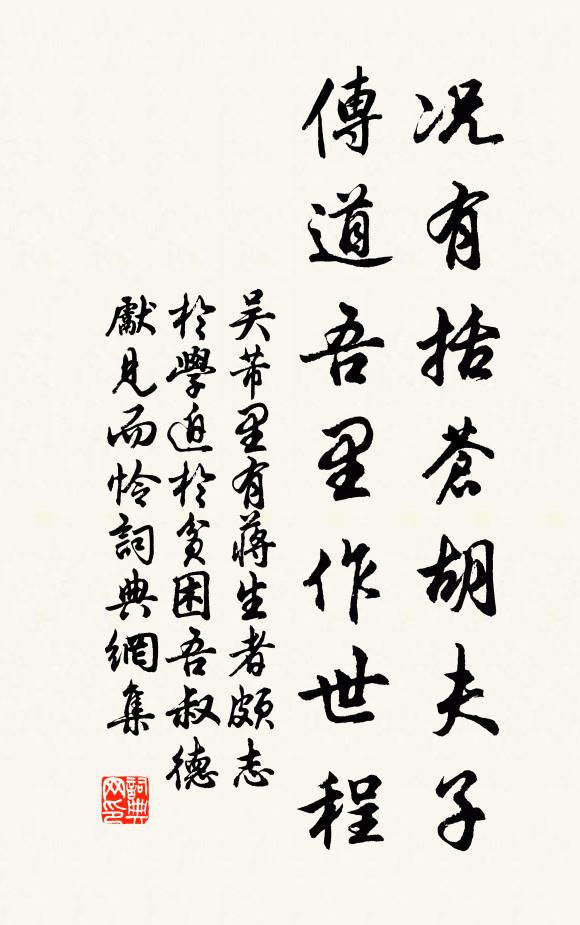 况有括蒼胡夫子
傳道吾里作世程
吴芾里有蒋生者頗志
於學迫於貧困吾叔德
獻見而怜詞典網集
詞典网印